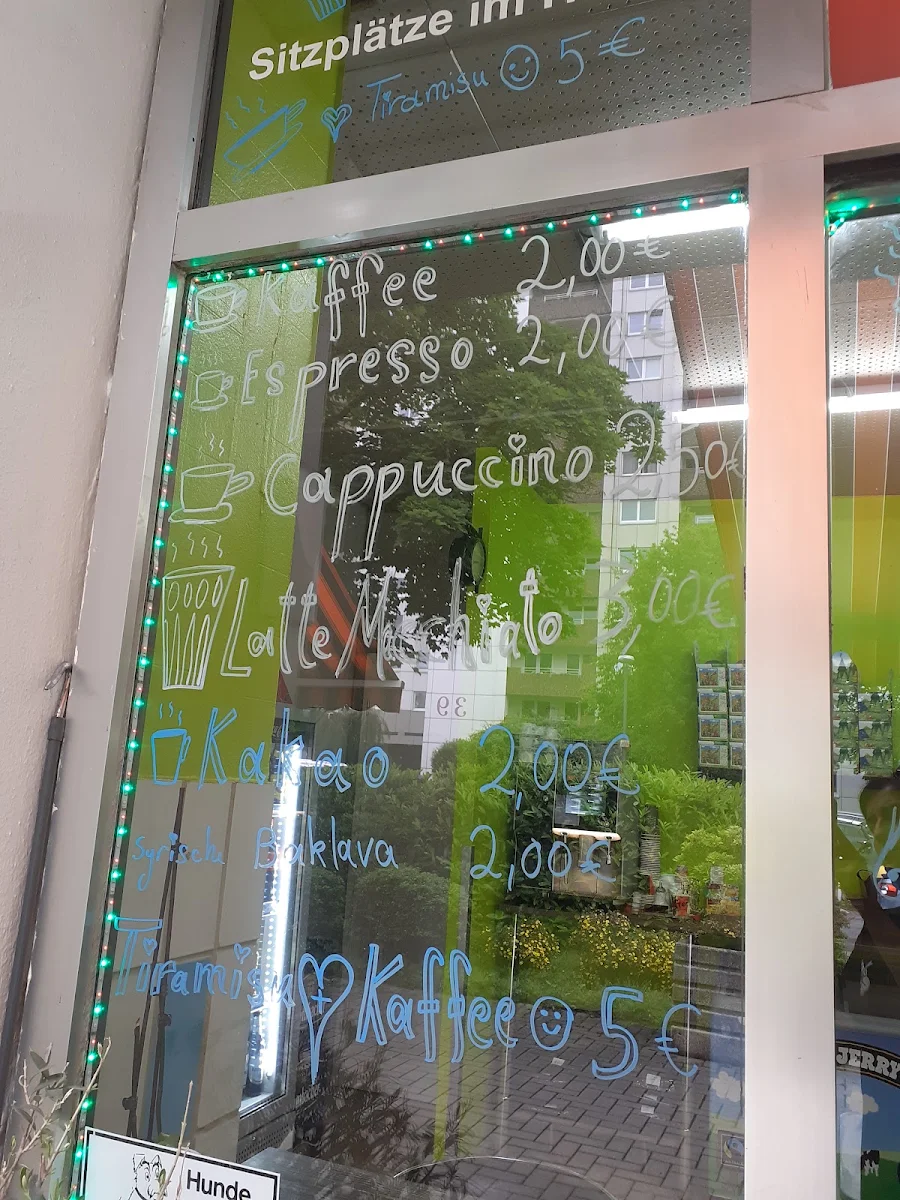 Sitzplätze im
Tiramisu 5 €
Kaffee 2,00 €
Espresso 2,00 €
Cappuccino 2,50 €
Latte Machiato 3,00 €
39
Kakao 2,00 €
Syrisch Baklava 2,00 €
Tiramisu + Kaffee 5 €
JERRY
Hunde